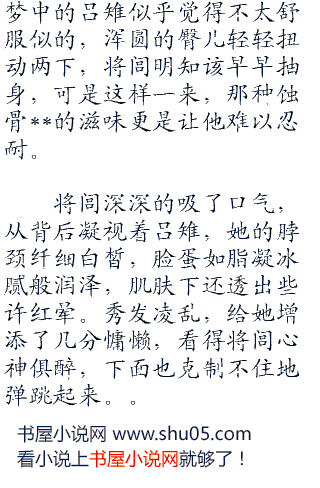 梦中的吕雉似乎觉得不太舒
服似的，浑圆的臀儿轻轻扭
动两下，将闾明知该早早抽
身，可是这样一来，那种蚀
骨**的滋味更是让他难以忍
耐。
将闾深深的吸了口气，
从背后凝视着吕雉，她的脖
颈纤细白皙，脸蛋如脂凝冰
腻般润泽，肌肤下还透出些
许红晕。秀发凌乱，给她增
添了几分慵懒，看得将闾心
神俱醉，下面也克制不住地
弹跳起来。。
书屋小说网 www.shu05.com
看小说上书屋小说网就够了！